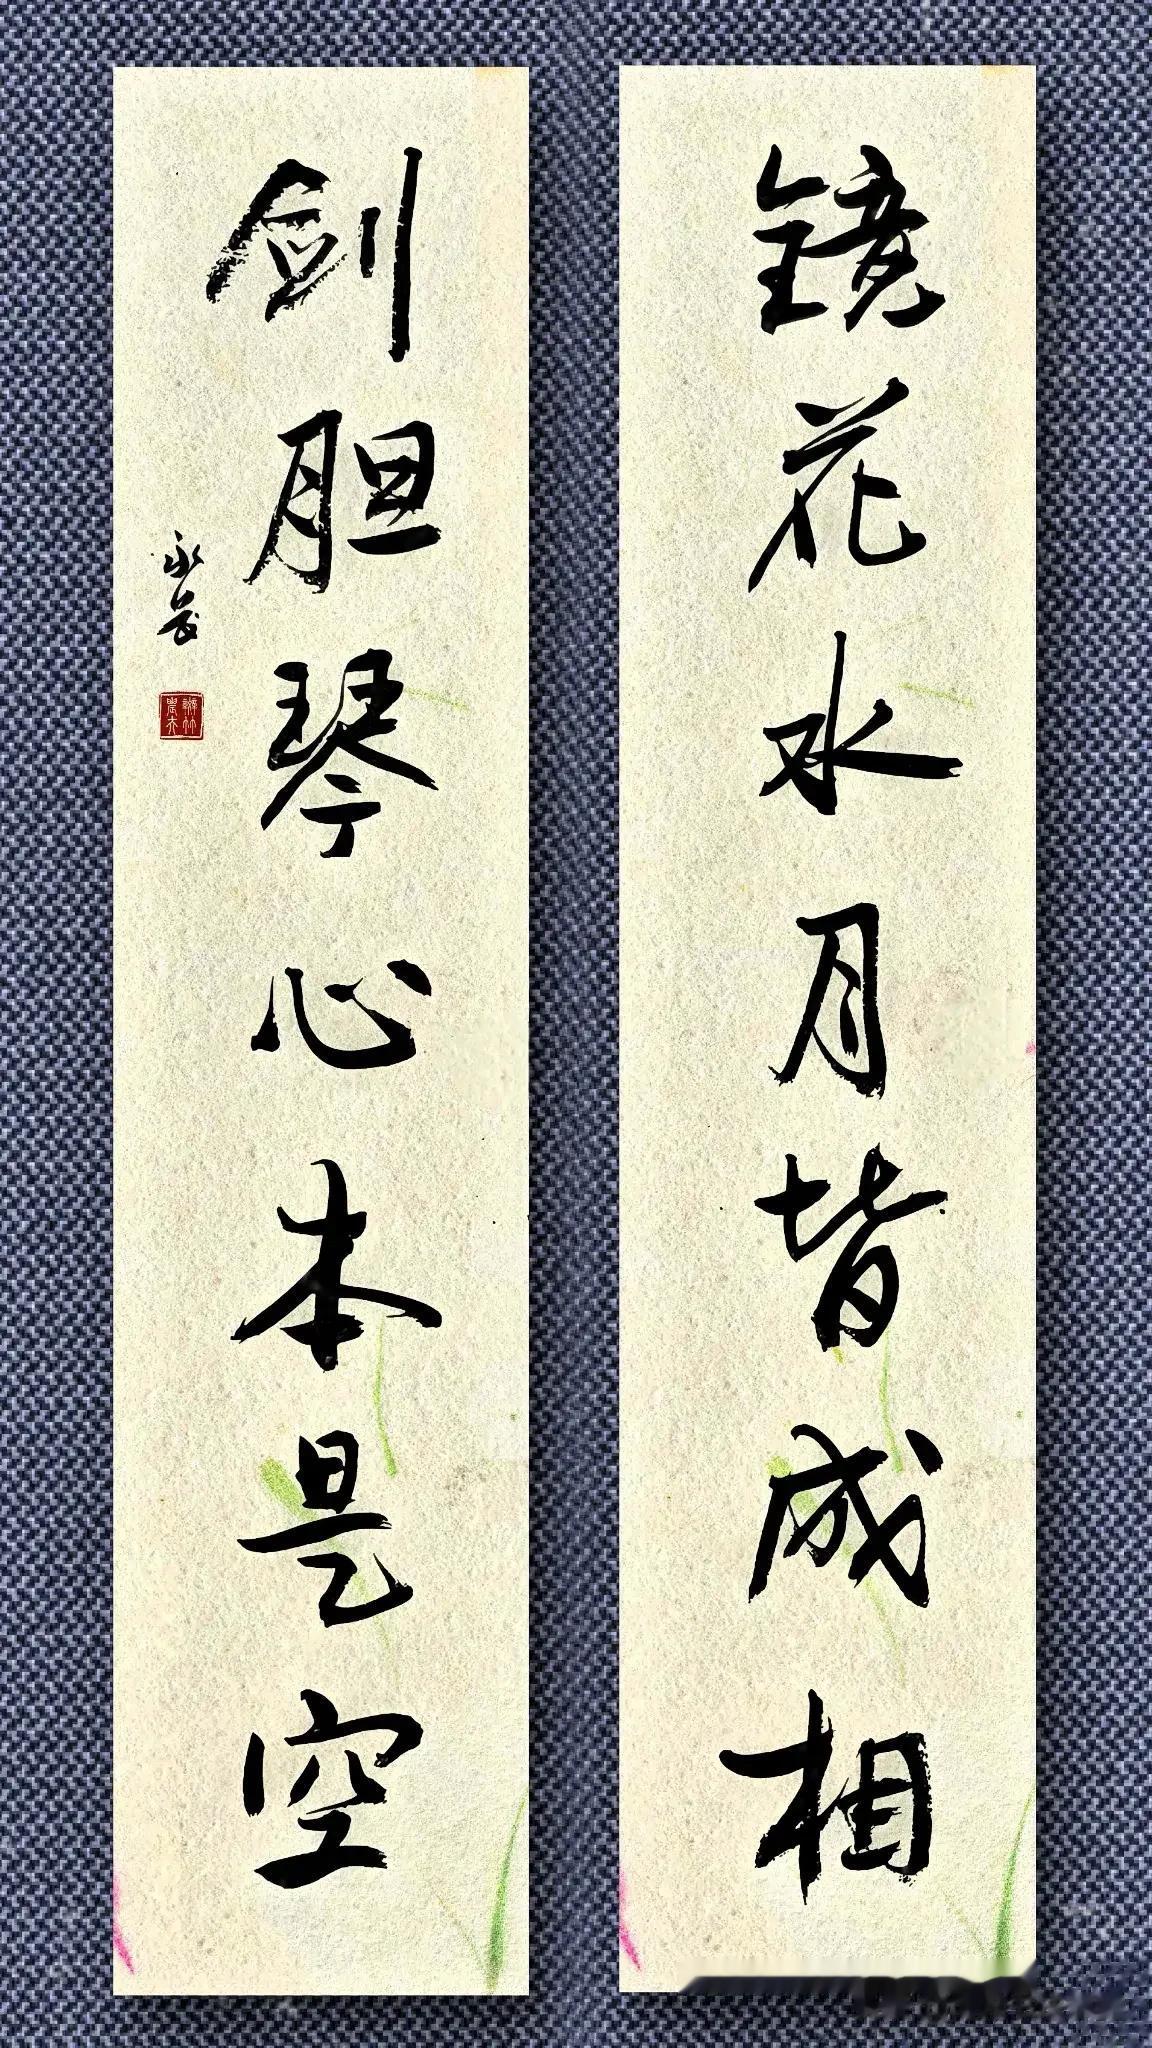 镜花水月皆成相
剑胆琴心本是空
永茂